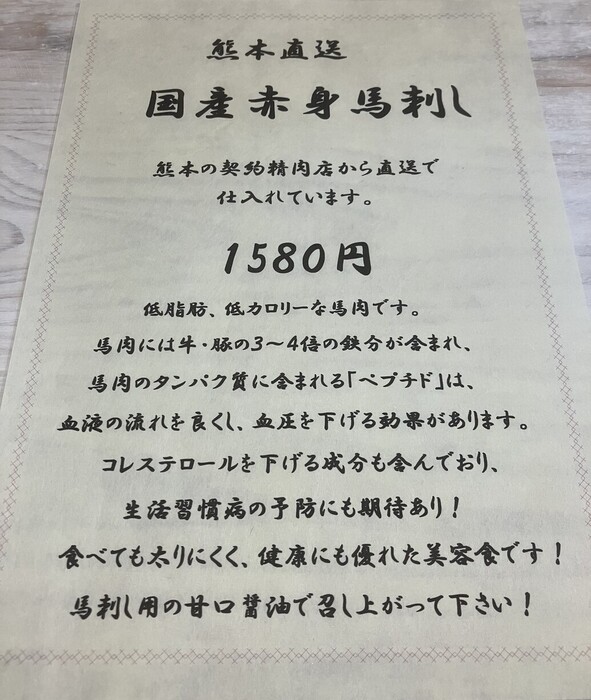 熊本直送
国産赤身馬刺し
熊本の契約精肉店から直送で
仕入れています。
1580円
低脂肪、低カロリーな馬肉です。
馬肉には牛・豚の3～4倍の鉄分が含まれ、
馬肉のタンパク質に含まれる「ペプチド」は、
血液の流れを良くし、血圧を下げる効果があります。
コレステロールを下げる成分も含んでおり、
生活習慣病の予防にも期待あり！
食べても太りにくく、健康にも優れた美容食です！
馬刺し用の甘口醤油で召し上がって下さい！